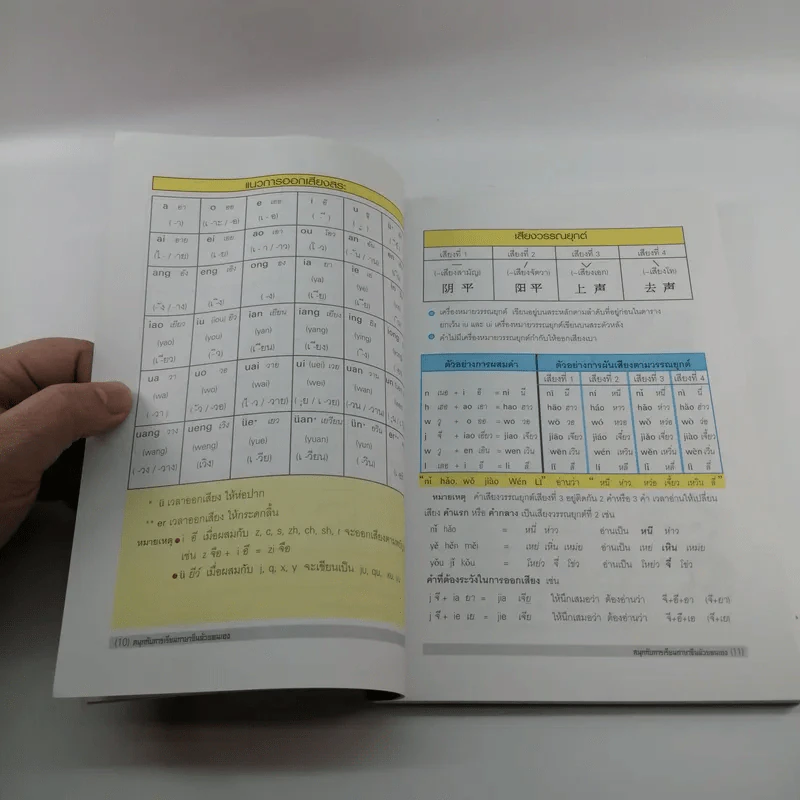 แนวการออกเสียงสระ
a อา o ออ e เออ i อี u อู
(-า) (เ-าะ / -อ) (เ-อ) (-ี) (-ู)
ai อาย ei เอย ao อาว ou โอว an อัน
(ไ- / -าย) (เ-ย) (เ-า / -าว) (โ-ว) (-ัน / -าน)
ang อัง eng เอิง ong อง ia ยา ie เย
(-ัง / -าง) (เ-ิง) (-ง) (ya) (ye)
(เ-ีย)
iao เยียว iu (iou) ยิว ian เยียน iang เยียง ing อิง
(yao) (you) (yan) (yang) (ying)
(เ-ียว) (-ิว) (เ-ียน) (เ-ียง) (-ิง)
ua วา uo วอ uai วาย ui (uei) เวย uan วาน
(wa) (wo) (wai) (wei) (wan)
(-วา) (-ัว / วอ) (ไ-ว / -วาย) (-ุย / เ-วย) (-วน / -วาน)
uang วาง ueng เวิง üe* เยว üan* เยวียน ün*
(wang) (weng) (yue) (yuan) (yun)
(-วง / -วาง) (เวิง) (เ-วีย) (เ-วียน) (-วิน)
* ü เวลาออกเสียง ให้ห่อปาก
** er เวลาออกเสียง ให้กระดกลิ้น
หมายเหตุ ● i อี เมื่อผสมกับ z, c, s, zh, ch, sh, r จะออกเสียงตาม
เช่น z จือ + i อี = zi จือ
● ü ยวี เมื่อผสมกับ j, q, x, y จะเขียนเป็น ju, qu, xu
(10) สนุกกับการเรียนภาษาจีนด้วยตนเอง
เสียงวรรณยุกต์
เสียงที่ 1 เสียงที่ 2 เสียงที่ 3 เสียงที่ 4
(~เสียงสามัญ) (~เสียงจัตวา) (~เสียงเอก) (~เสียงโท)
阴平 阳平 上声 去声
เครื่องหมายวรรณยุกต์ เขียนอยู่บนสระหลักตามลำดับที่อยู่ก่อนในตาราง
ยกเว้น iu และ ui เครื่องหมายวรรณยุกต์เขียนบนสระตัวหลัง
คำไม่มีเครื่องหมายวรรณยุกต์กำกับให้ออกเสียงเบา
ตัวอย่างการผสมคำ ตัวอย่างการผันเสียงตามวรรณยุกต์
เสียงที่ 1 เสียงที่ 2 เสียงที่ 3 เสียงที่ 4
n เออ + i อี = ni นี nī นี ní หนี nǐ หนี่ nì นี่
h เฮอ + ao เอา = hao ฮาว hāo ฮาว háo หาว hǎo ห่าว hào ฮ่าว
w วู + o ออ = wo วอ wō วอ wó หวอ wǒ หว่อ wò ว่อ
j จี + iao เยียว = jiao เจียว jiāo เจียว jiáo เจี๋ยว jiǎo เจี่ยว jiào เจี้ยว
w วู + en เอิน = wen เวิน wēn เวิน wén เหวิน wěn เหวิ่น wèn เวิ่น
l เลอ + i อี = li ลี lī ลี lí หลี lǐ หลี่ lì ลี่
"nǐ hǎo, wǒ jiào Wén Lì" อ่านว่า "หนี ห่าว, หว่อ เจี้ยว เหวิน ลี่"
หมายเหตุ คำเสียงวรรณยุกต์เสียงที่ 3 อยู่ติดกัน 2 คำหรือ 3 คำ เวลาอ่านให้เปลี่ยน
เสียง คำแรก หรือ คำกลาง เป็นเสียงวรรณยุกต์ที่ 2 เช่น
nǐ hǎo = หนี่ ห่าว อ่านเป็น หนี ห่าว
yě hěn měi = เหย่ เหิ่น เหม่ย อ่านเป็น เหย่ เหิน เหม่ย
yǒu jǐ kǒu = โหย่ว จี่ โข่ว อ่านเป็น โหย่ว จี๋ โข่ว
คำที่ต้องระวังในการออกเสียง เช่น
j จี + ia ยา = jia เจีย ให้นึกเสมอว่า ต้องอ่านว่า จี+อี+ยา (จี+ยา)
j จี + ie เย = jie เจีย ให้นึกเสมอว่า ต้องอ่านว่า จี+อี+เย (จี+เย)
สนุกกับการเรียนภาษาจีนด้วยตนเอง (11)